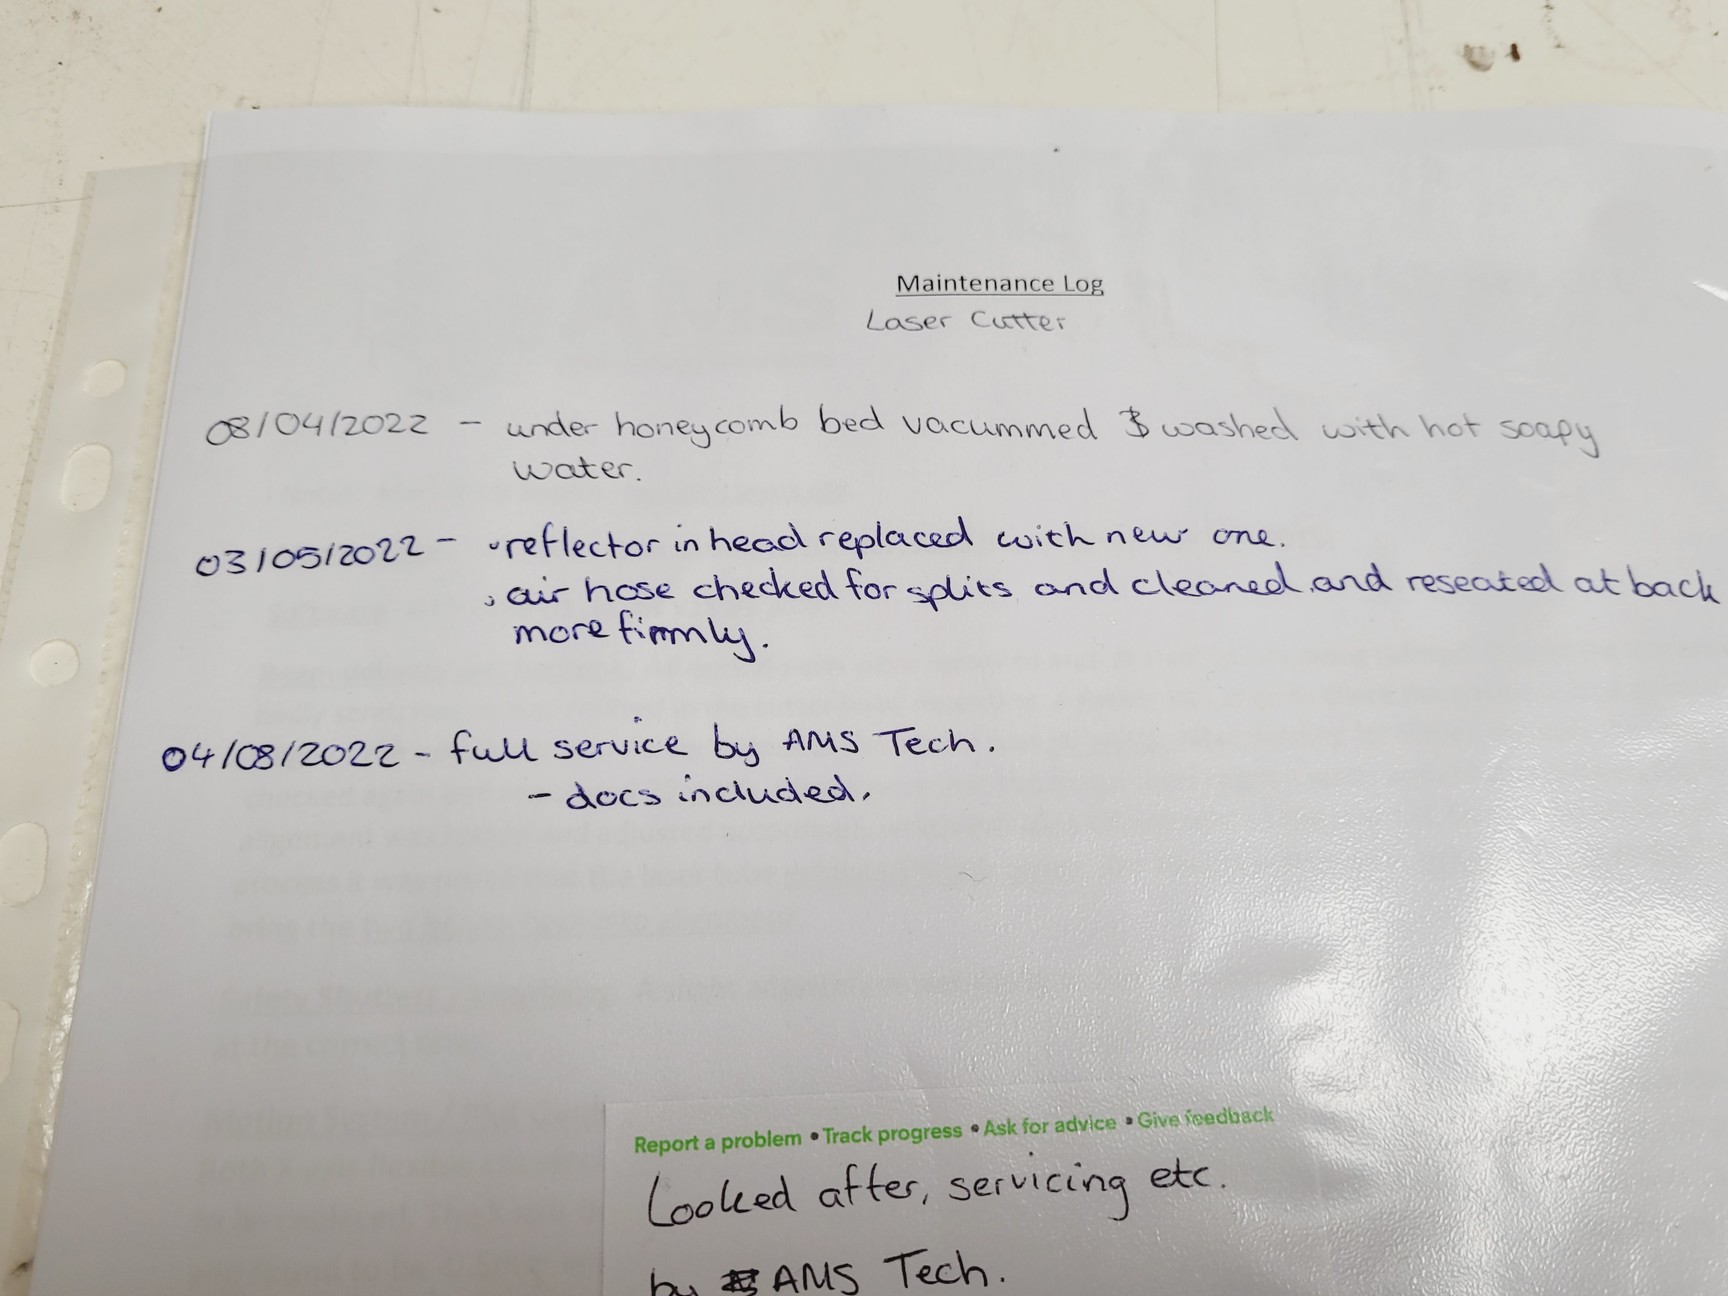 Maintenance Log
Laser Cutter
08/04/2022 - under honeycomb bed vacummed & washed with hot soapy
water.
03/05/2022 - • reflector in head replaced with new one.
• air hose checked for splits and cleaned and reseated at back
more firmly.
04/08/2022 - full service by AMS Tech.
- docs included.
Report a problem • Track progress • Ask for advice • Give feedback
Looked after, servicing etc.
by AMS Tech.